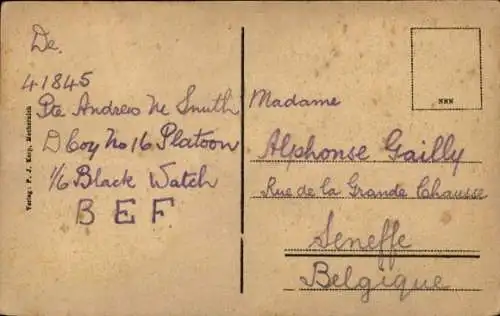 De.
41845
Pte Andrew Mc Smith
D Coy No 16 Platoon
1/6 Black Watch
B E F
Verlag: P. J. Korp, Mechernich
Madame
Alphonse Gailly
Rue de la Grande Chausse
Seneffe
Belgique
NNN